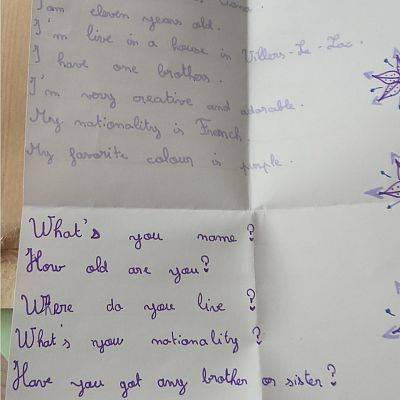 I am eleven years old.
I'm live in a house in Villers-Le-Lac.
I have one brothers.
I'm very creative and adorable.
My nationality is French.
My favorite colour is purple.
What's you name?
How old are you?
Where do you live?
What's your nationality?
Have you got any brother or sister?